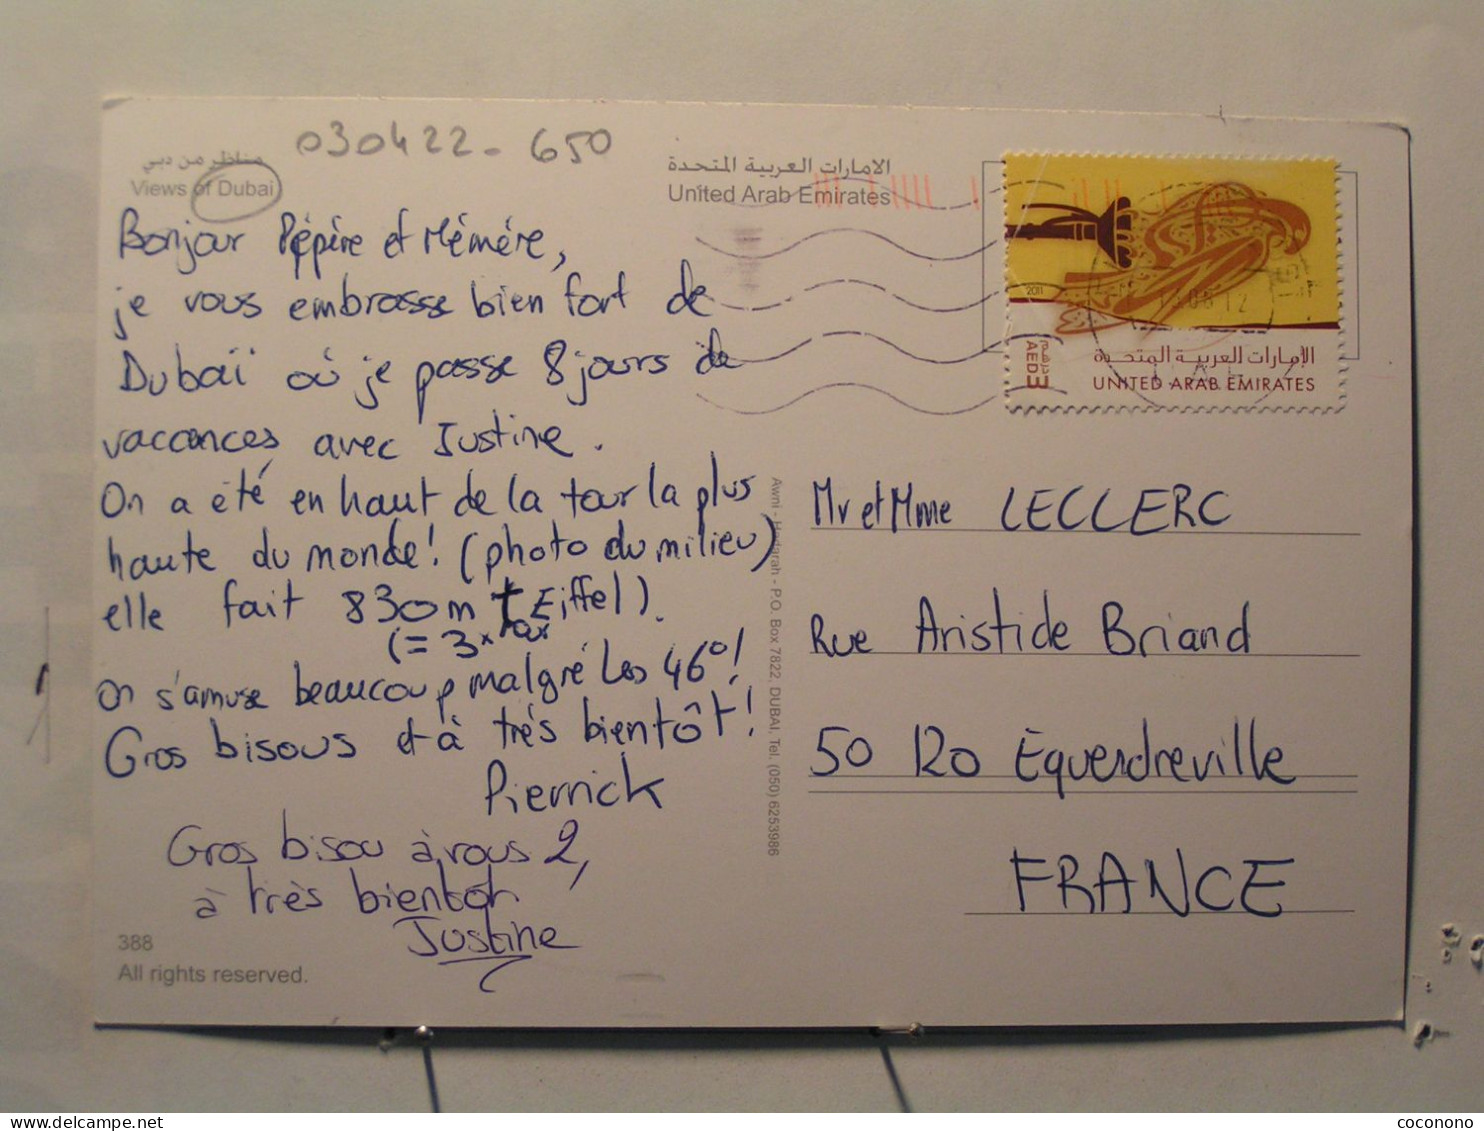 030422 - 650
مناظر من دبي
Views of Dubai
الامارات العربية المتحدة
United Arab Emirates
Bonjour Pépère et Mémère,
je vous embrasse bien fort de
Dubaï où je passe 8 jours de
vaccances avec Justine.
On a été en haut de la tour la plus
haute du monde! (photo du milieu)
elle fait 830m
(= 3x tour Eiffel).
On s'amuse beaucoup malgré les 46°!
Gros bisous et à très bientôt!
Pierrick
Gros bisou à vous 2,
à très bientôt
Justine
388
All rights reserved.
Awni - Hadarah - P.O. Box 7822, DUBAI, Tel. (050) 6253986
2011
درهم
AED 3
الإمارات العربية المتحدة
UNITED ARAB EMIRATES
Mr et Mme LECLERC
Rue Aristide Briand
50 120 Equerdreville
FRANCE
coconono